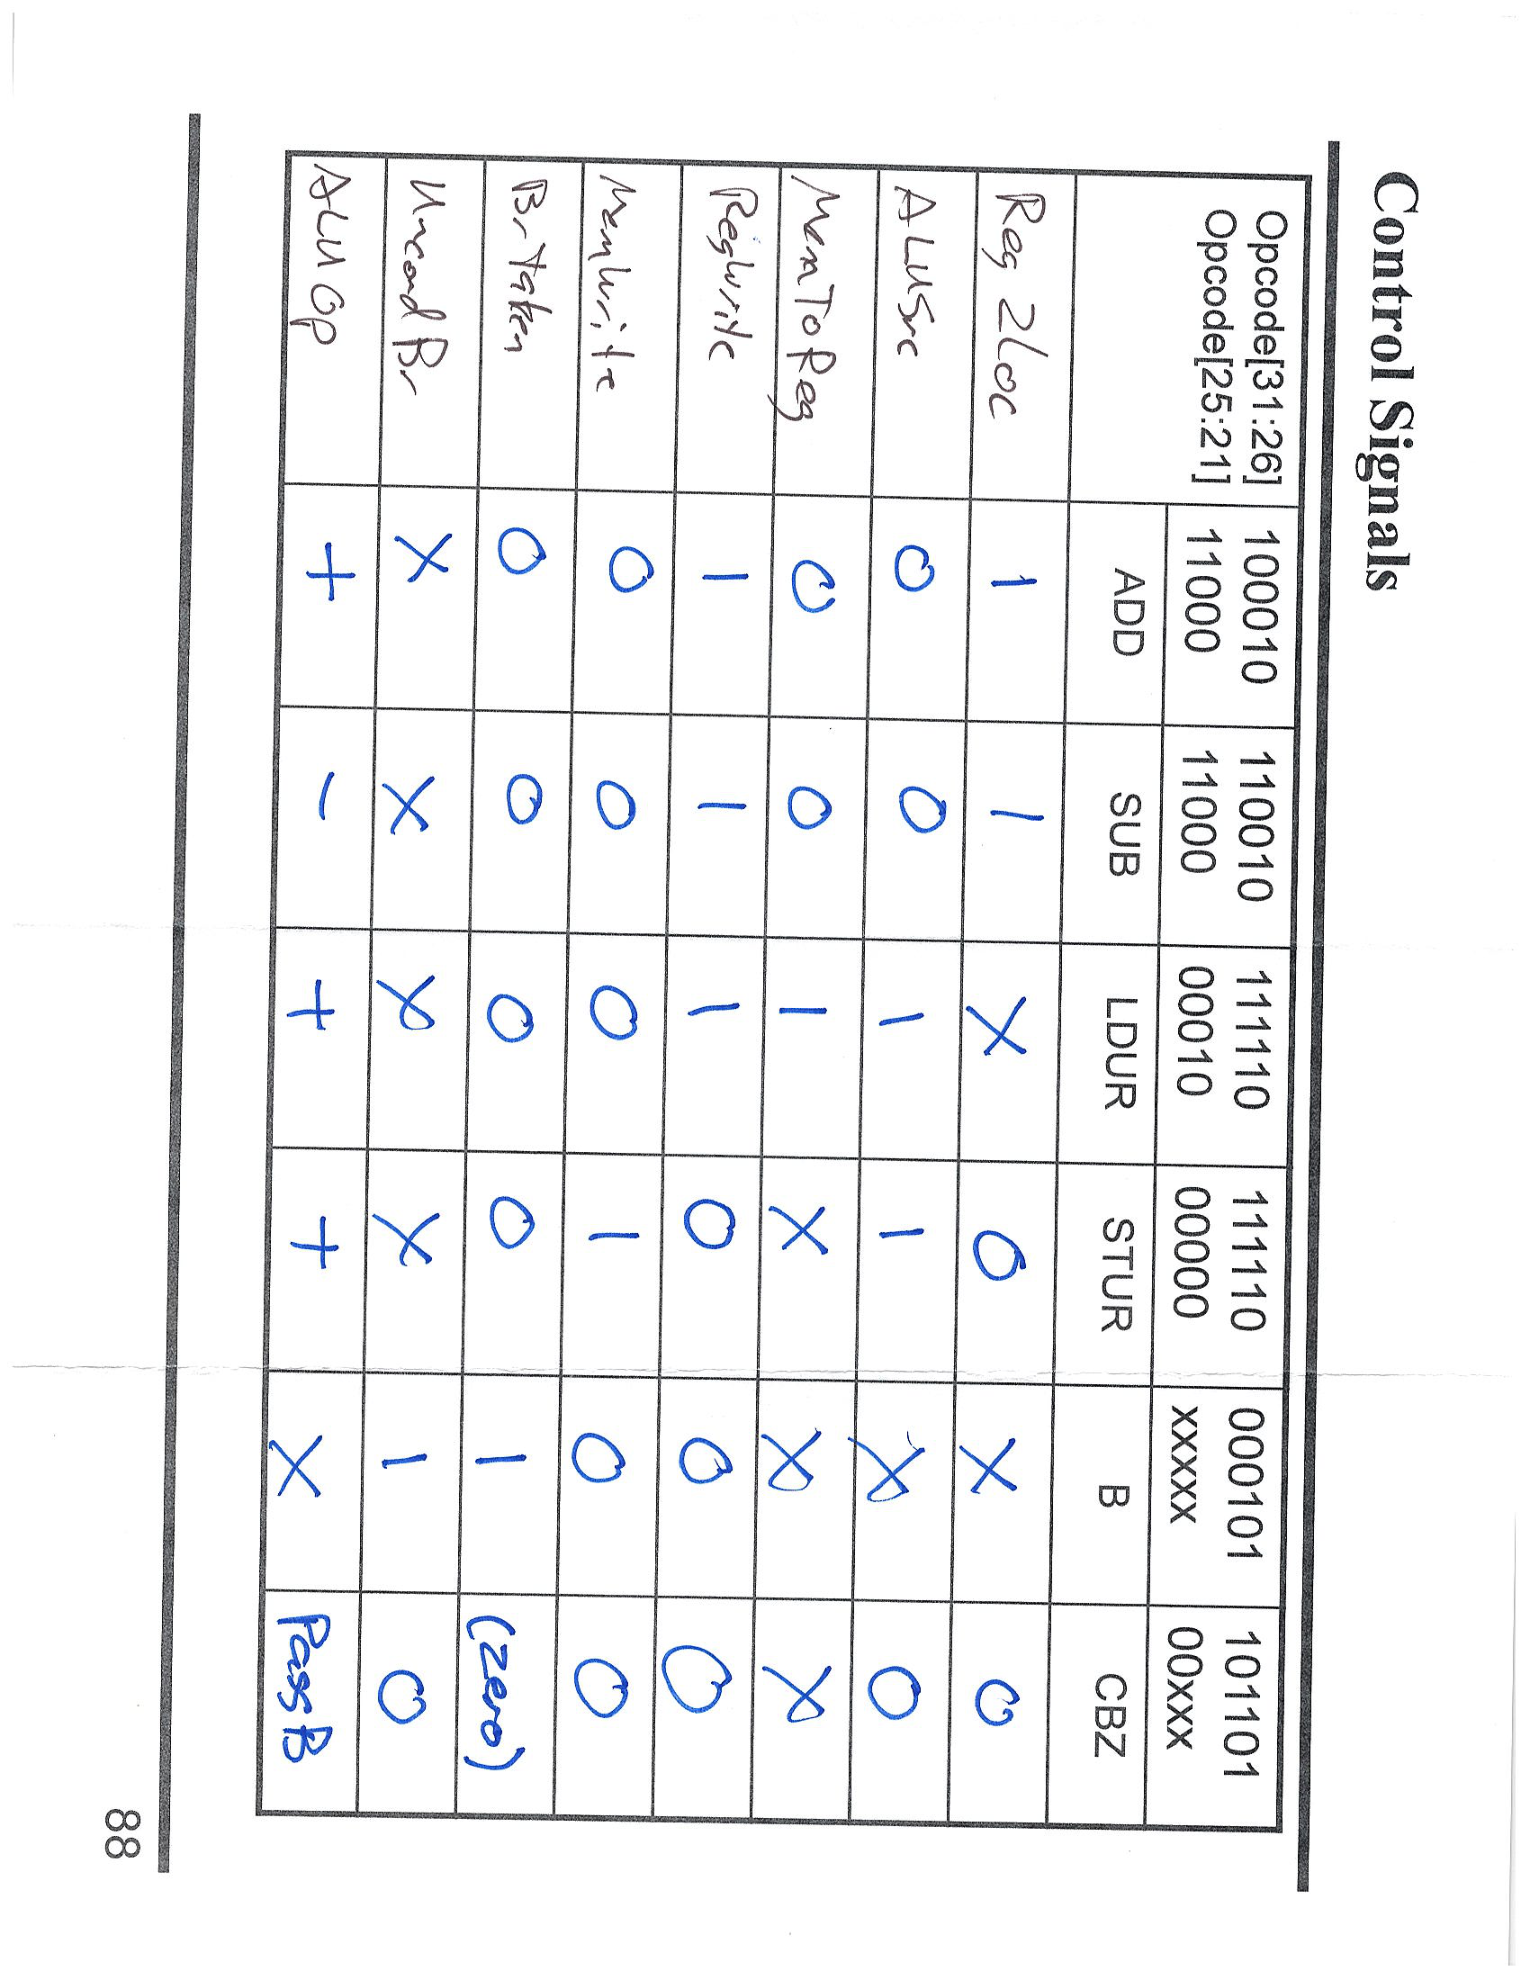 Control Signals
Opcode[31:26] 100010 110010 111110 111110 000101 101101
Opcode[25:21] 11000 11000 00010 00000 xxxxx 00xxx
ADD SUB LDUR STUR B CBZ
Reg2Loc 1 1 X 0 X 0
ALUSrc 0 0 1 1 X 0
MemToReg 0 0 1 X X X
RegWrite 1 1 1 0 0 0
MemWrite 0 0 0 1 0 0
BrTaken 0 0 0 0 1 (zero)
UncondBr X X X X 1 0
ALUOp + - + + X PassB
88